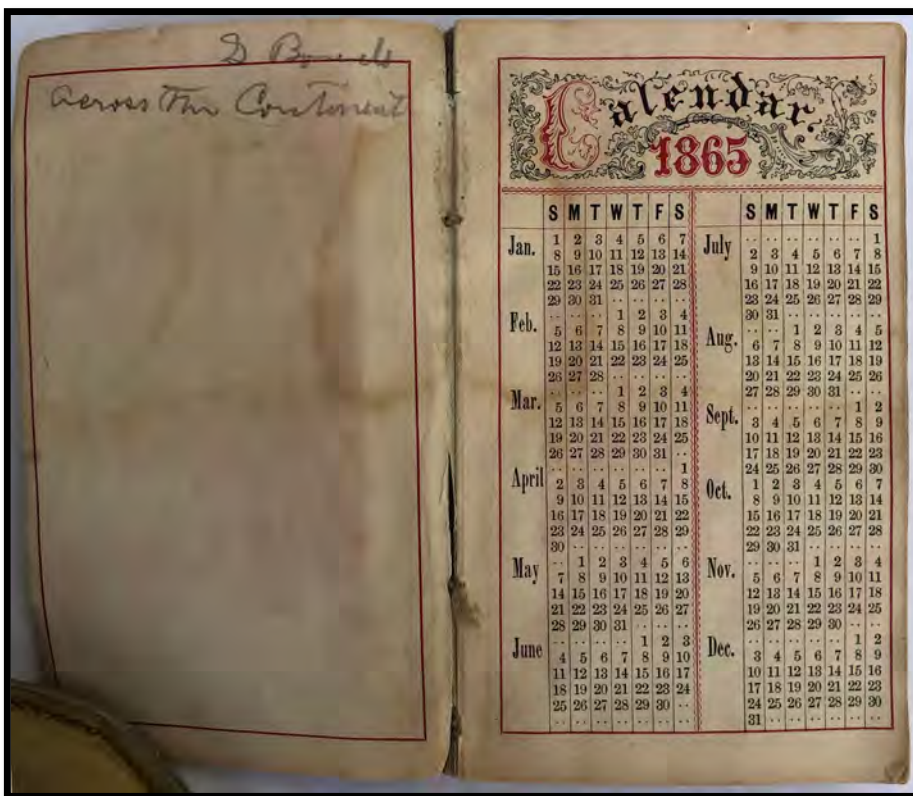 D
across the Continent
Calendar,
1865
S M T W T F S
Jan. 1 2 3 4 5 6 7
8 9 10 11 12 13 14
15 16 17 18 19 20 21
22 23 24 25 26 27 28
29 30 31 .. .. .. ..
Feb. .. .. .. 1 2 3 4
5 6 7 8 9 10 11
12 13 14 15 16 17 18
19 20 21 22 23 24 25
26 27 28 .. .. .. ..
Mar. .. .. .. 1 2 3 4
5 6 7 8 9 10 11
12 13 14 15 16 17 18
19 20 21 22 23 24 25
26 27 28 29 30 31 ..
April .. .. .. .. .. .. 1
2 3 4 5 6 7 8
9 10 11 12 13 14 15
16 17 18 19 20 21 22
23 24 25 26 27 28 29
30 .. .. .. .. .. ..
May .. 1 2 3 4 5 6
7 8 9 10 11 12 13
14 15 16 17 18 19 20
21 22 23 24 25 26 27
28 29 30 31 .. .. ..
June .. .. .. .. 1 2 3
4 5 6 7 8 9 10
11 12 13 14 15 16 17
18 19 20 21 22 23 24
25 26 27 28 29 30 ..
.. .. .. .. .. .. ..
S M T W T F S
July .. .. .. .. .. .. 1
2 3 4 5 6 7 8
9 10 11 12 13 14 15
16 17 18 19 20 21 22
23 24 25 26 27 28 29
30 31 .. .. .. .. ..
Aug. .. .. 1 2 3 4 5
6 7 8 9 10 11 12
13 14 15 16 17 18 19
20 21 22 23 24 25 26
27 28 29 30 31 .. ..
Sept. .. .. .. .. .. 1 2
3 4 5 6 7 8 9
10 11 12 13 14 15 16
17 18 19 20 21 22 23
24 25 26 27 28 29 30
Oct. 1 2 3 4 5 6 7
8 9 10 11 12 13 14
15 16 17 18 19 20 21
22 23 24 25 26 27 28
29 30 31 .. .. .. ..
Nov. .. .. .. 1 2 3 4
5 6 7 8 9 10 11
12 13 14 15 16 17 18
19 20 21 22 23 24 25
26 27 28 29 30 .. ..
Dec. .. .. .. .. .. 1 2
3 4 5 6 7 8 9
10 11 12 13 14 15 16
17 18 19 20 21 22 23
24 25 26 27 28 29 30
31 .. .. .. .. .. ..